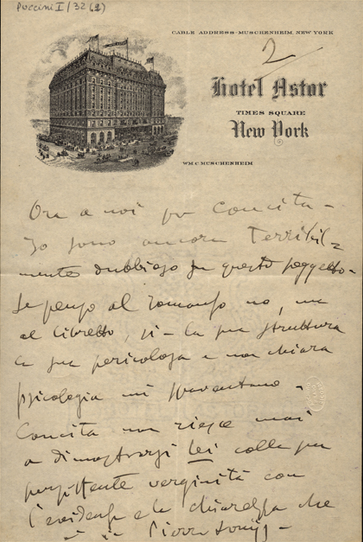 Puccini I/32 (2)
CABLE ADDRESS-MUSCHENHEIM, NEW YORK
2
Hotel Astor
TIMES SQUARE
New York
WM. C. MUSCHENHEIM
Ora a noi per Concita-
Io sono ancora terribil-
mente dubbioso su questo soggetto-
Se penso al romanzo no, ma
al libretto, sì - la sua struttura
la sua pericolosa e non chiara
psicologia mi spaventano -
Concita non riesce mai
a dimostrarsi lei colla sua
persistente verginità con
l'evidenza e la chiarezza che
Pierre Louÿs -